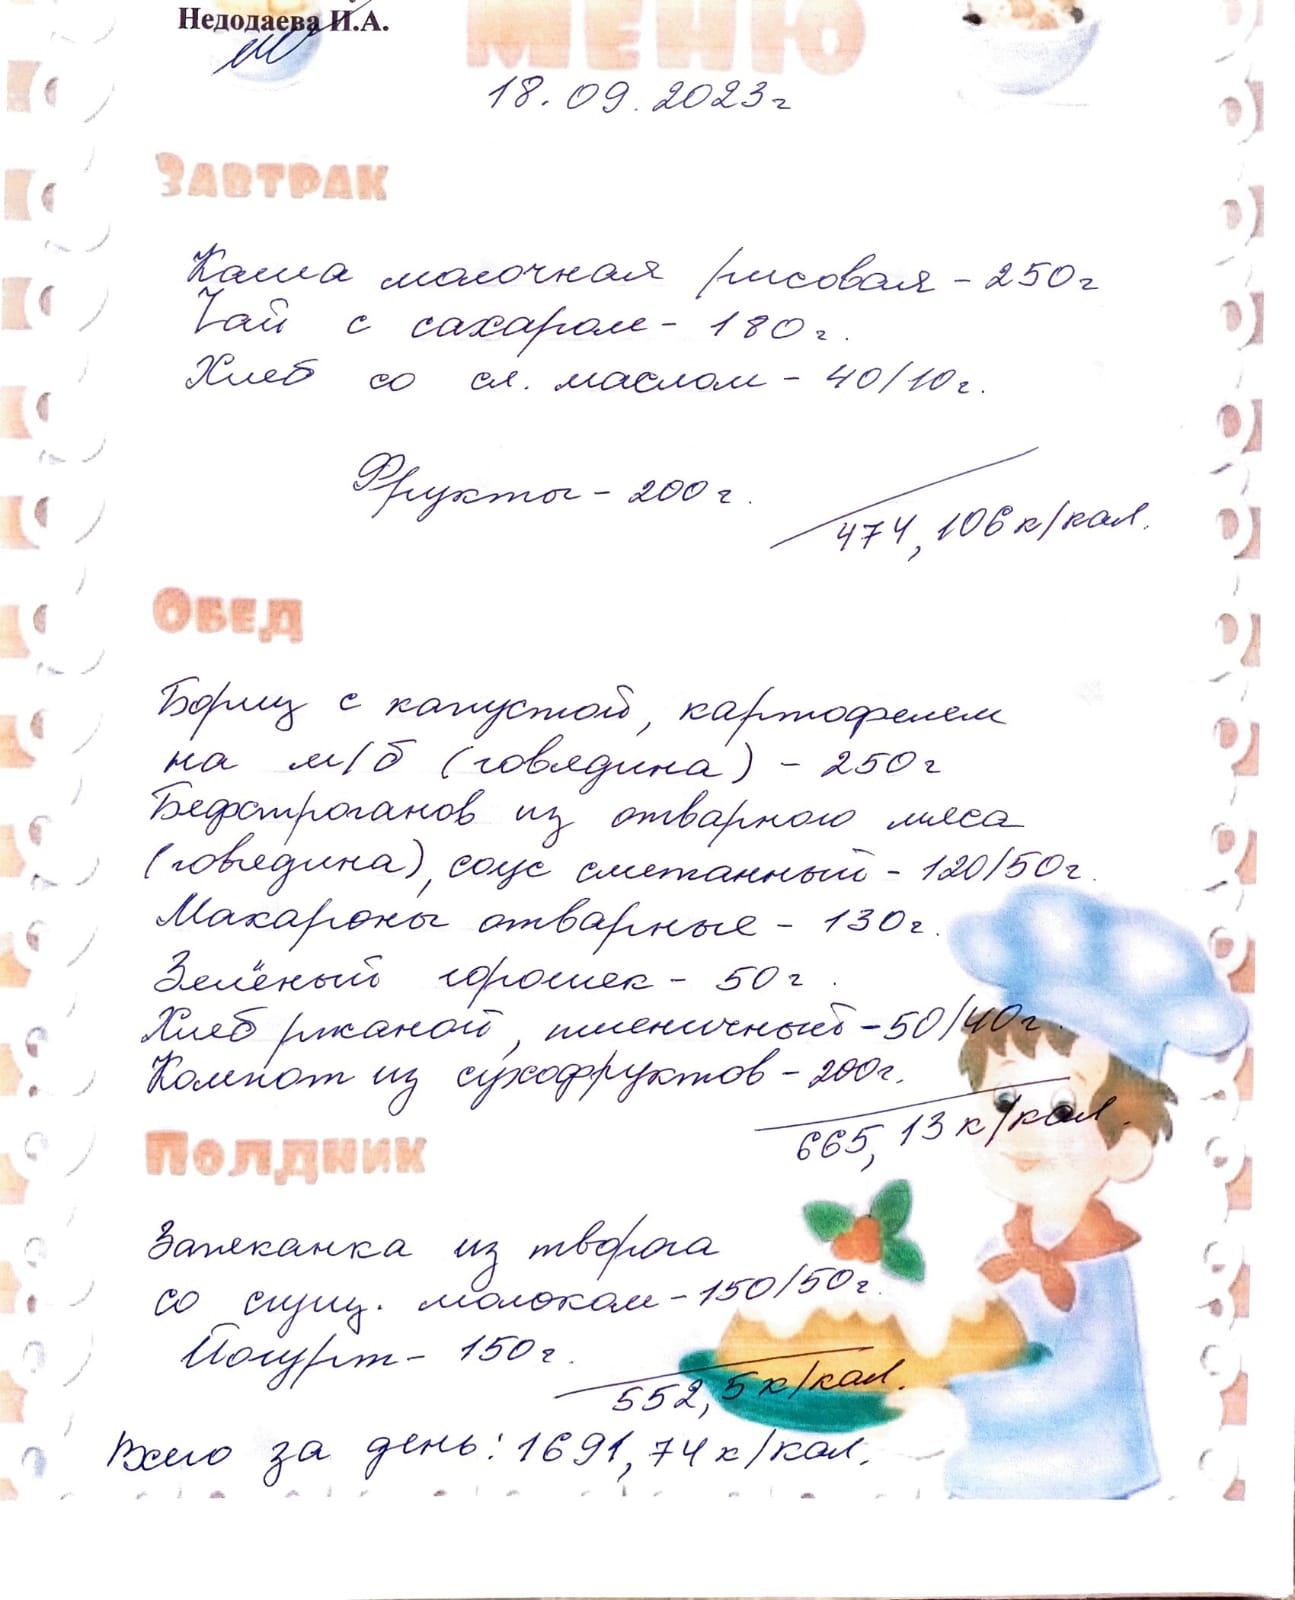 Недодаева И.А.
МЕНЮ
18.09.2023г
ЗАВТРАК
Каша молочная рисовая - 250г
Чай с сахаром - 180г.
Хлеб со сл. маслом - 40/10г.
Фрукты - 200г.
474,106 к/кал.
ОБЕД
Борщ с капустой, картофелем
на м/б (говядина) - 250г
Бефстроганов из отварного мяса
(говядина), соус сметанный - 120/50г.
Макароны отварные - 130г.
Зелёный горошек - 50г.
Хлеб ржаной, пшеничный - 50/40г.
Компот из сухофруктов - 200г.
665,13 к/кал.
ПОЛДНИК
Запеканка из творога
со сгущ. молоком - 150/50г.
Йогурт - 150г.
552,5 к/кал.
Всего за день: 1691,74 к/кал.